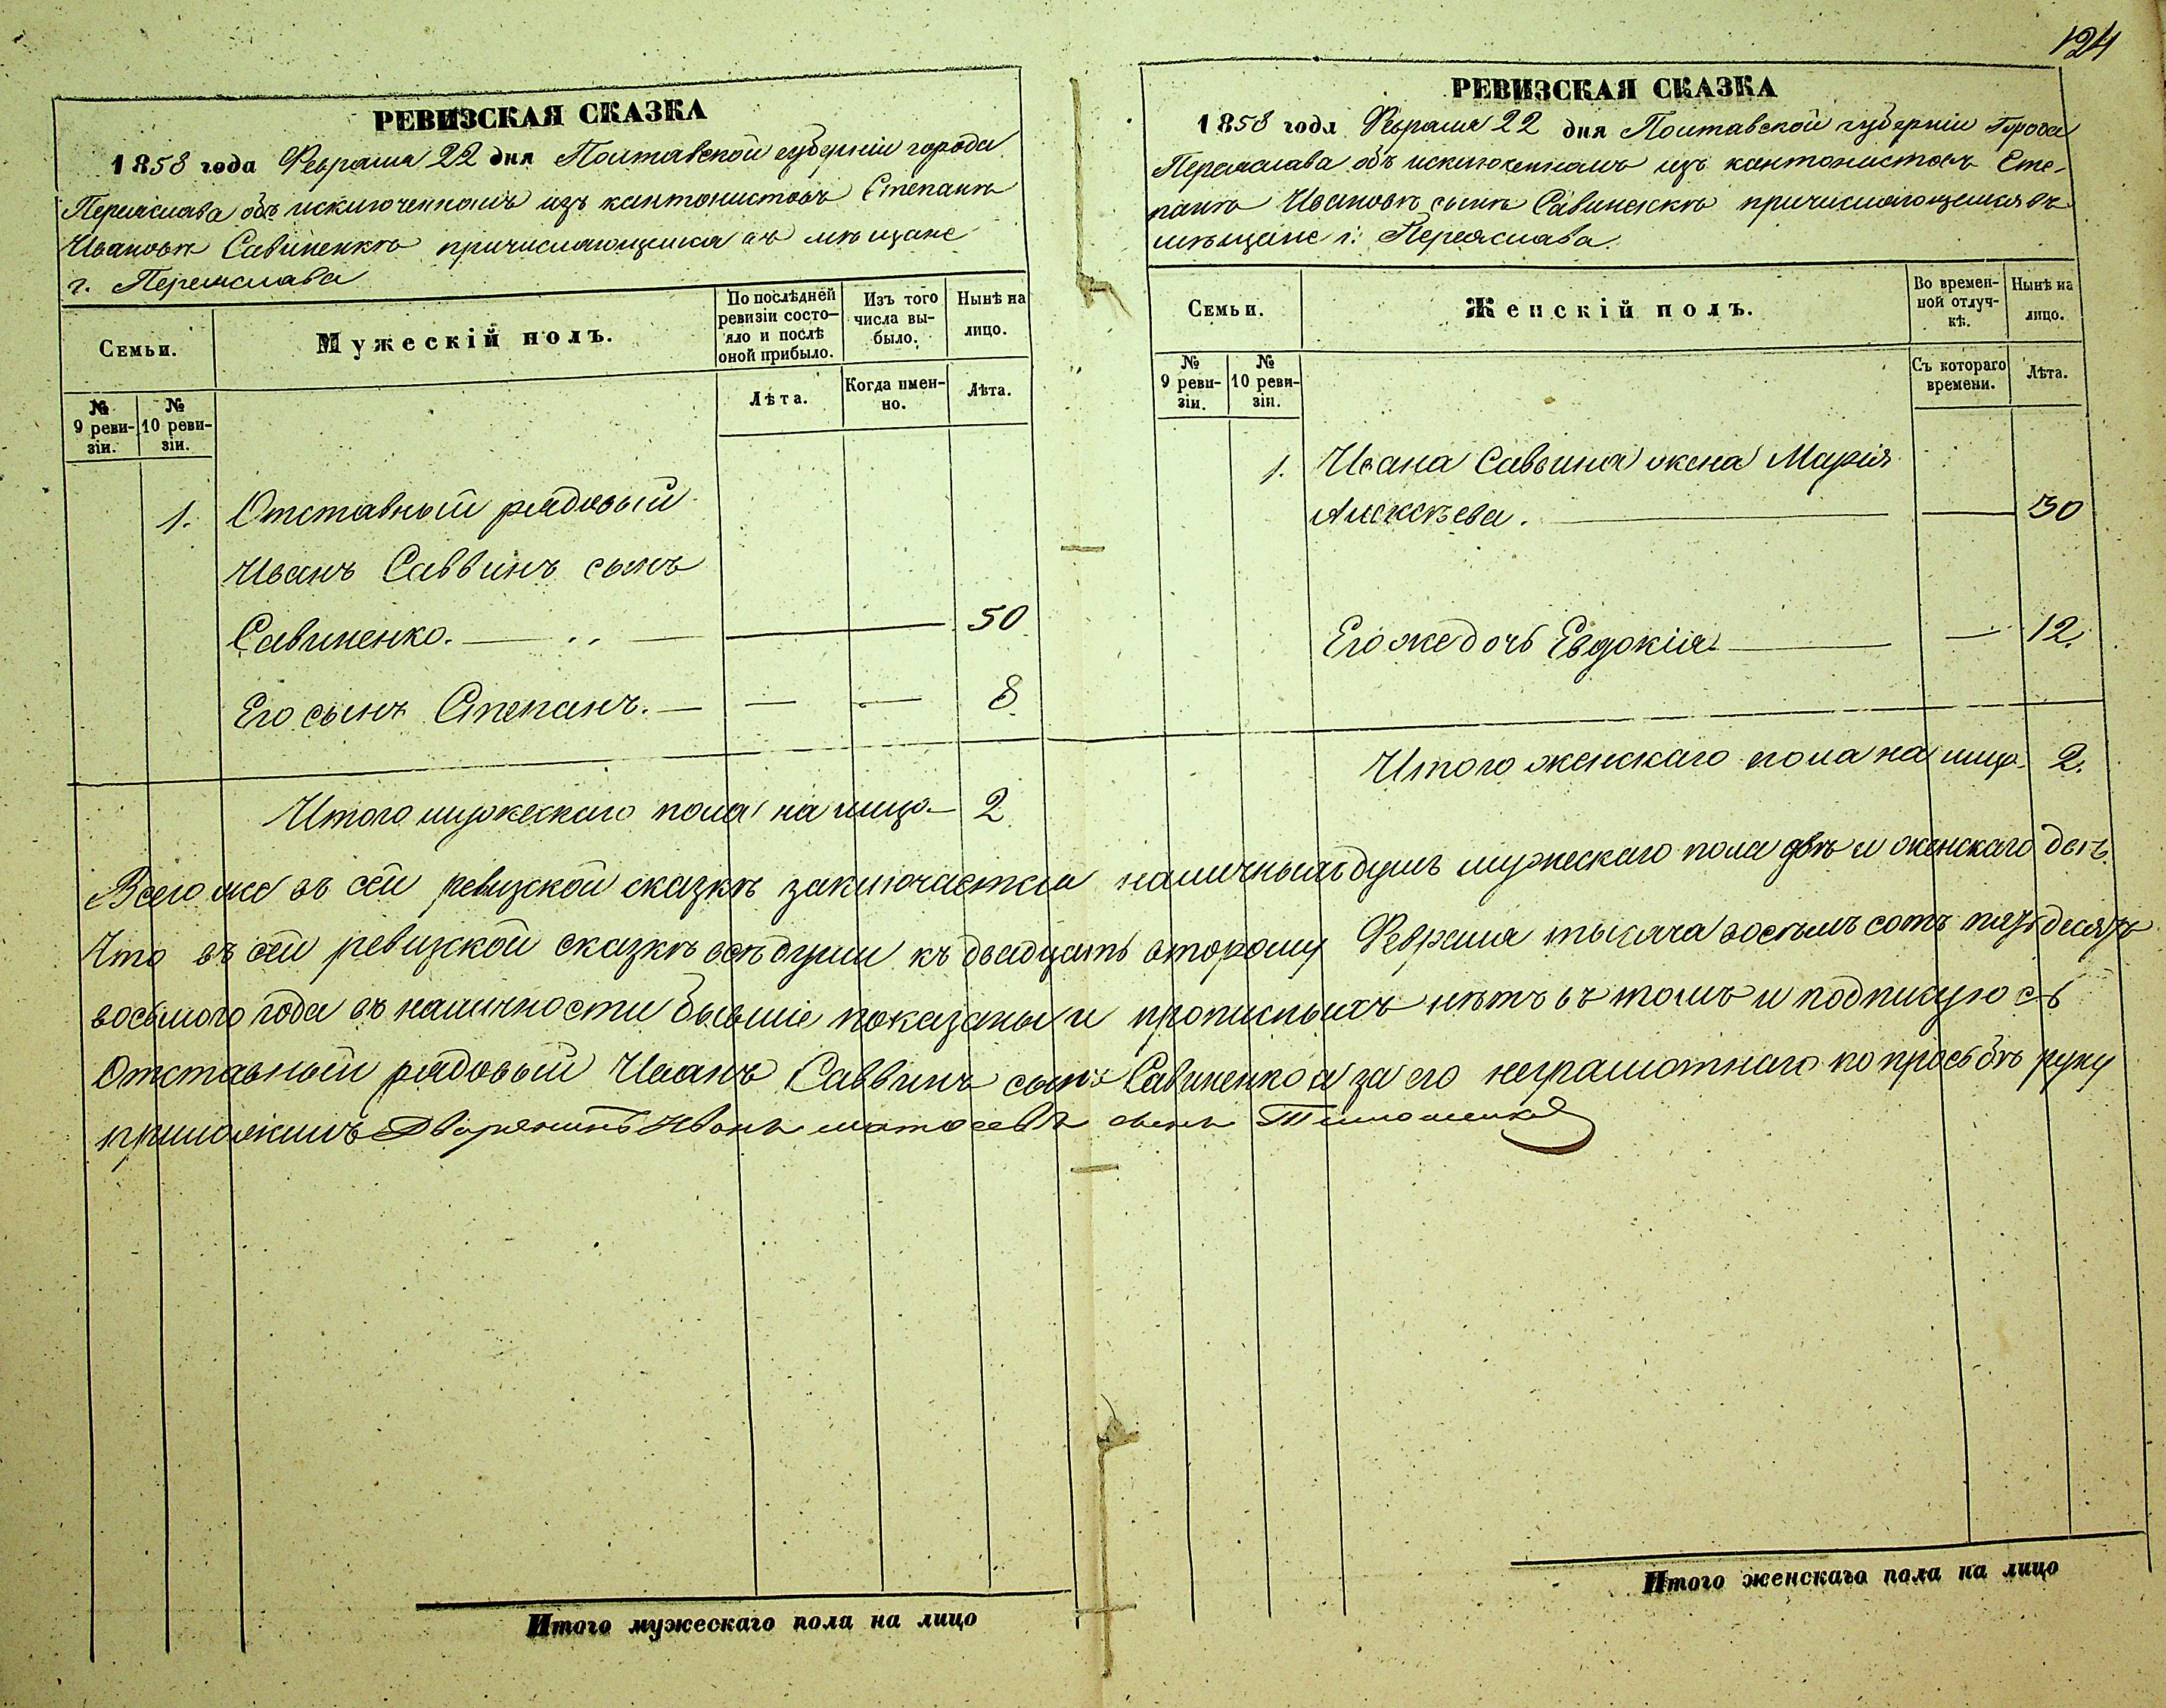 124
РЕВИЗСКАЯ СКАЗКА
1858 года Февраля 22 дня Полтавской губерніи города
Переяслава объ исключенномъ изъ кантонистовъ Степанѣ
Ивановѣ Савиненкѣ причисляющемся въ мѣщане
г. Переяслава
Семьи.
Мужескій полъ.
По послѣдней
ревизіи состо-
яло и послѣ
оной прибыло.
Изъ того
числа вы-
было.
Нынѣ на
лицо.
№
9 реви-
зіи.
№
10 реви-
зіи.
Лѣта.
Когда имен-
но.
Лѣта.
1. Отставный рядовый
Иванъ Саввинъ сынъ
Савиненко. 50
Его сынъ Степанъ. 8
Итого мужескаго пола на лицо 2
РЕВИЗСКАЯ СКАЗКА
1858 года Февраля 22 дня Полтавской губерніи Города
Переяслава объ исключенномъ изъ кантонистовъ Сте-
панѣ Ивановѣ сынѣ Савиненкѣ причисляющемся въ
мѣщане г. Переяслава.
Семьи.
Женскій полъ.
Во времен-
ной отлуч-
кѣ.
Нынѣ на
лицо.
№
9 реви-
зіи.
№
10 реви-
зіи.
Съ котораго
времени.
Лѣта.
1. Ивана Саввина жена Марія
Алексѣева. 30
Его же дочь Евдокія 12.
Итого женскаго пола на лицо 2.
Всего же въ сей ревизской сказкѣ заключается наличныхъ душъ мужескаго пола двѣ и женскаго двѣ.
Что въ сей ревизской сказкѣ всѣ души къ двадцать второму Февраля тысяча восемь сотъ пятьдесятъ
восьмого года въ наличности бывшіе показаны и прописныхъ нѣтъ въ томъ и подписуюсь
Отставный рядовый Иванъ Саввинъ сынъ Савиненко а за его неграмотнаго по прозьбѣ руку
приложилъ Дворянинъ Иванъ сынъ
Итого мужескаго пола на лицо
Итого женскаго пола на лицо